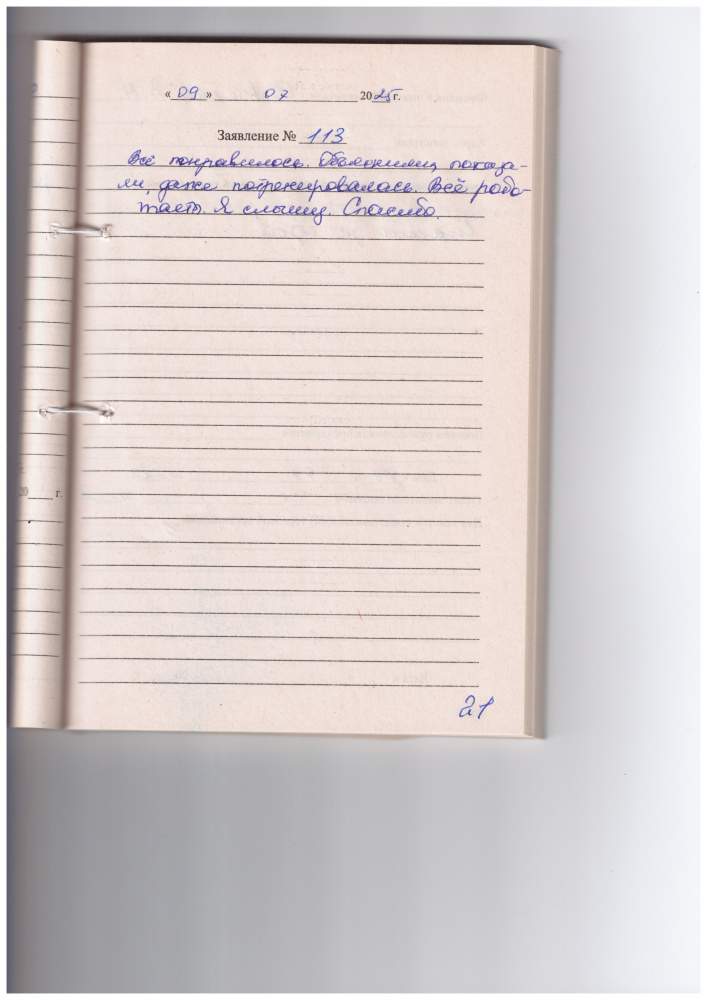 « 09 » 07 2025 г.
Заявление № 113
Всё понравилось. Объяснили, показа-
ли, даже потренировалась. Всё рабо-
тает. Я слышу. Спасибо.
20 г.
21